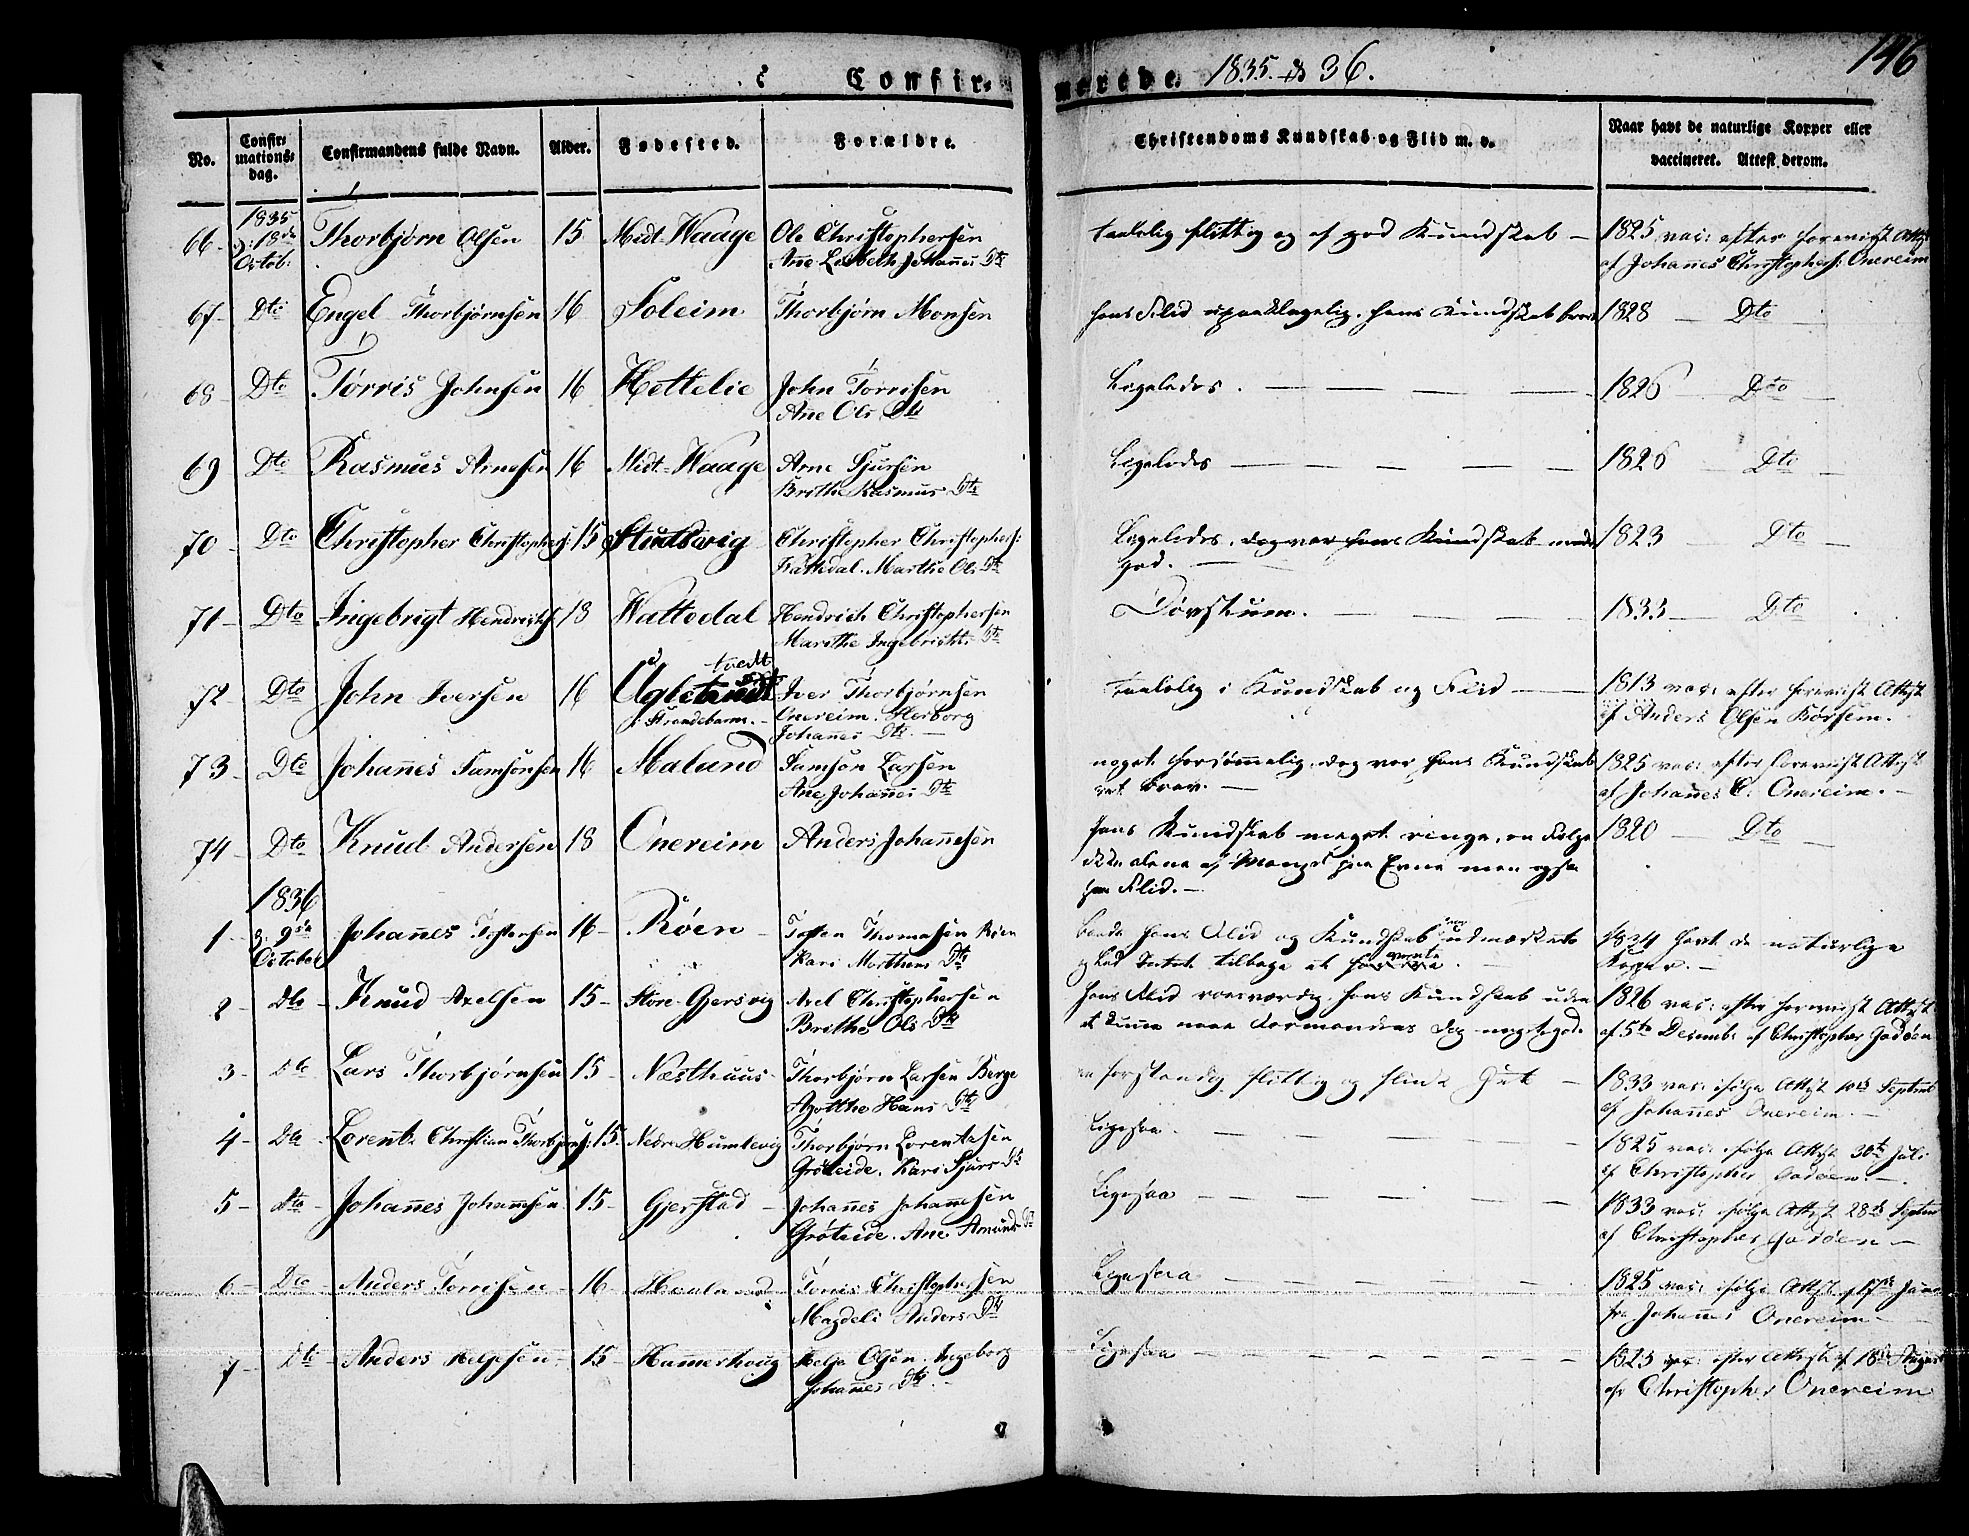 Confirmerede 1835. & 36.
146
No.
Confirmations dag.
Confirmandens fulde Navn.
Alder.
Fødested.
Forældre.
Christendoms Kundskab og Flid m. v.
Naar havt de naturlige Kopper eller
vaccineret. Attest derom.
66 1835 d: 18de Octob: Thorbjørn Olsen 15 Midt-Waage Ole Christophersen
Ane Lisbeth Johannes Dtr
taalelig flittig og af god Kundskab
1825 vac: efter foreviist Attest
af Johannes Christophers: Onereim
67 Dto Engel Thorbjørnsen 16 Soleim Thorbjørn Monsen
hans Flid upaaklagelig, hans Kundskab
1828 Dto
68 Dto Tørris Johnsen 16 Hettelie John Torrisen
Ane Ols Dtr
Ligeledes.
1826 Dto
69 Dto Rasmus Arnesen 16 Midt-Waage Arne Sjursen
Brithe Rasmus Dtr
Ligeledes
1826 Dto
70 Dto Christopher Christophers: 15 Christopher Christophers:
Marthe Ols Dtr
Ligeledes, dog var hans Kundskab
god.
1823 Dto
71 Dto Ingebrigt Hendrichs: 18 Wattedal Hendrich Christophersen
Marithe Ingebrichts Dtr
Døvstum.
1833 Dto
72 Dto John Iversen 16 tvedt
i Strandebarm. Iver Thorbjørnsen
Onereim. Herborg
Johannes Dtr
taalelig i Kundskab og Flid
1813 vac: efter foreviist Attest
af Anders Olsen
73 Dto Johannes Samsonsen 16 Malund Samson Larsen
Ane Johannes Dtr
noget forsømmelig, dog var hans Kundskab
ret brav.
1825 vac: efter foreviist Attest
af Johannes C. Onereim.
74 Dto Knud Andersen 18 Onereim Anders Johannesen
hans Kundskab meget ringe, en Følge
ikke alene af Mangel paa Evne men også
paa Flid.
1820 Dto
1836
1 d: 9de October Johannes Tostensen 16 Røen Tosten Thomasen Røen
Kari Marthens Dtr
baade hans Flid og Kundskab udmærkede
og lod Intet tilbage at
1834 havt de naturlige
Kopper.
2 Dto Knud Axelsen 15 Store Gjersvig Axel Christophersen
Brithe Ols Dtr
hans Flid roesværdig, hans Kundskab uden
at kunne dog meget god
1826 vac: efter foreviist Attest
af 5te Decembr: af Christopher Godøen
3 Dto Lars Thorbjørnsen 15 Næsthuus Thorbjørn Larsen Berge
Agotthe Hans Dtr
en forstandig, flittig og flink Gut
1833 vac: ifølge Attest 10de Septemb
af Johannes Onereim.
4 Dto Lorentz Christian Thorbjørns: 15 Nedre Humlevig Thorbjørn Lorentzsen
Grøteide. Kari Sjurs Dtr
Ligesaa.
1825 vac: ifølge Attest 30te Juli
af Christopher Godøen.
5 Dto Johannes Johannesen 15 Gjerstad Johannes Johannesen
Grøteide. Ane Amunds Dtr
Ligesaa
1833 vac: ifølge Attest 28de Septbr
af Christopher Godøen
6 Dto Anders Torrisen 16 Tørris Christophersen
Magdeli Anders Dtr
Ligesaa
1825 vac: ifølge Attest af 17de Janu
fra Johannes Onereim
7 Dto Anders Helgesen 15 Hammerhoug Helge Olsen. Ingeborg
Johannes Dtr
Ligesaa
1823 vac: efter Attest af 18de August
af Christopher Onereim